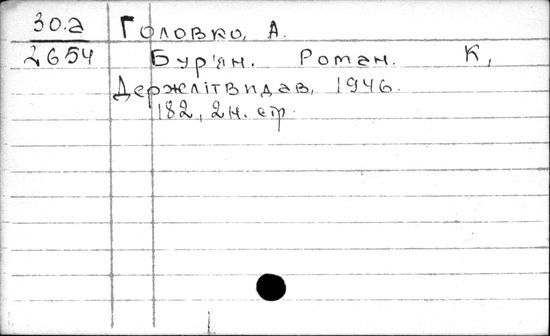 30.а Головко, А.
2654 Бур'ян. Роман. К,
Держлітвидав, 1946.
182, 2 н. стр.